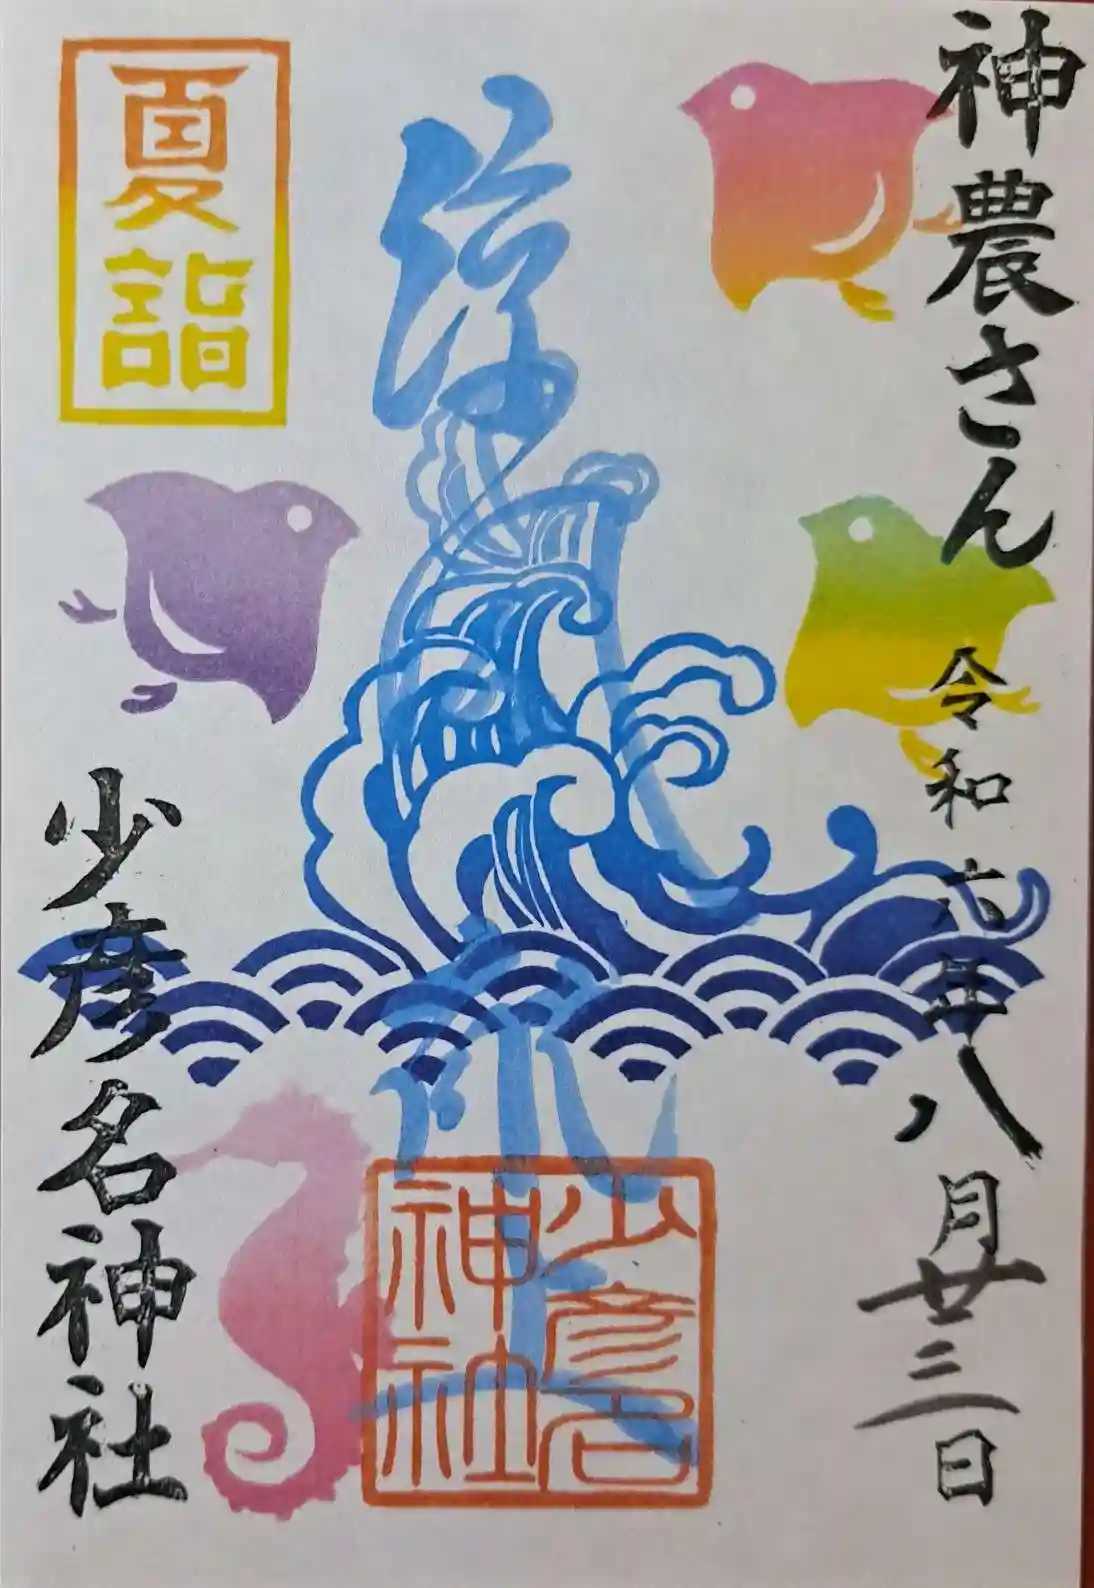 神農さん
令和六年八月廿三日
少彦名
神社
夏詣
少彦名神社